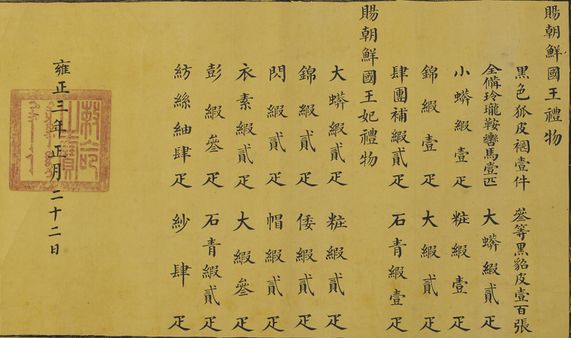 賜朝鮮國王禮物
黑色狐皮裀壹件 參等黑貂皮壹百張
全備玲瓏鞍轡馬壹匹 大蟒緞貳疋
小蟒緞壹疋 粧緞壹疋
錦緞壹疋 大緞貳疋
肆團補緞貳疋 石青緞壹疋
賜朝鮮國王妃禮物
大蟒緞貳疋 粧緞貳疋
錦緞貳疋 倭緞貳疋
閃緞貳疋 帽緞貳疋
衣素緞貳疋 大緞參疋
彭緞參疋 石青緞貳疋
紡絲紬肆疋 紗肆疋
雍正三年正月二十二日